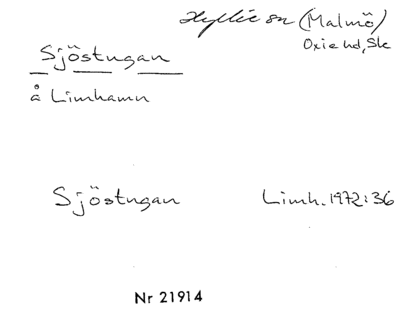 Hyllie sn (Malmö)
Oxie hd, Sk
Sjöstugan
å Limhamn
Sjöstugan Limh. 1972:36
Nr 21914